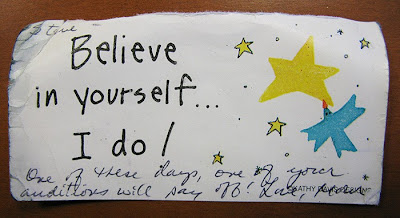 Steve —
Believe
in yourself...
I do!
One of these days, one of your
auditions will pay off! Love,
KATHY DAVIS